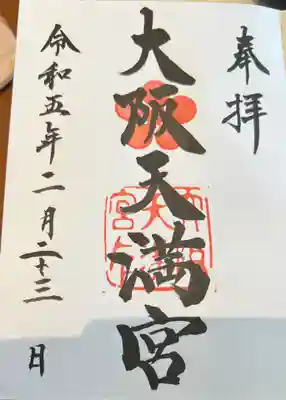 奉拝
大阪天満宮
令和五年二月二十三日